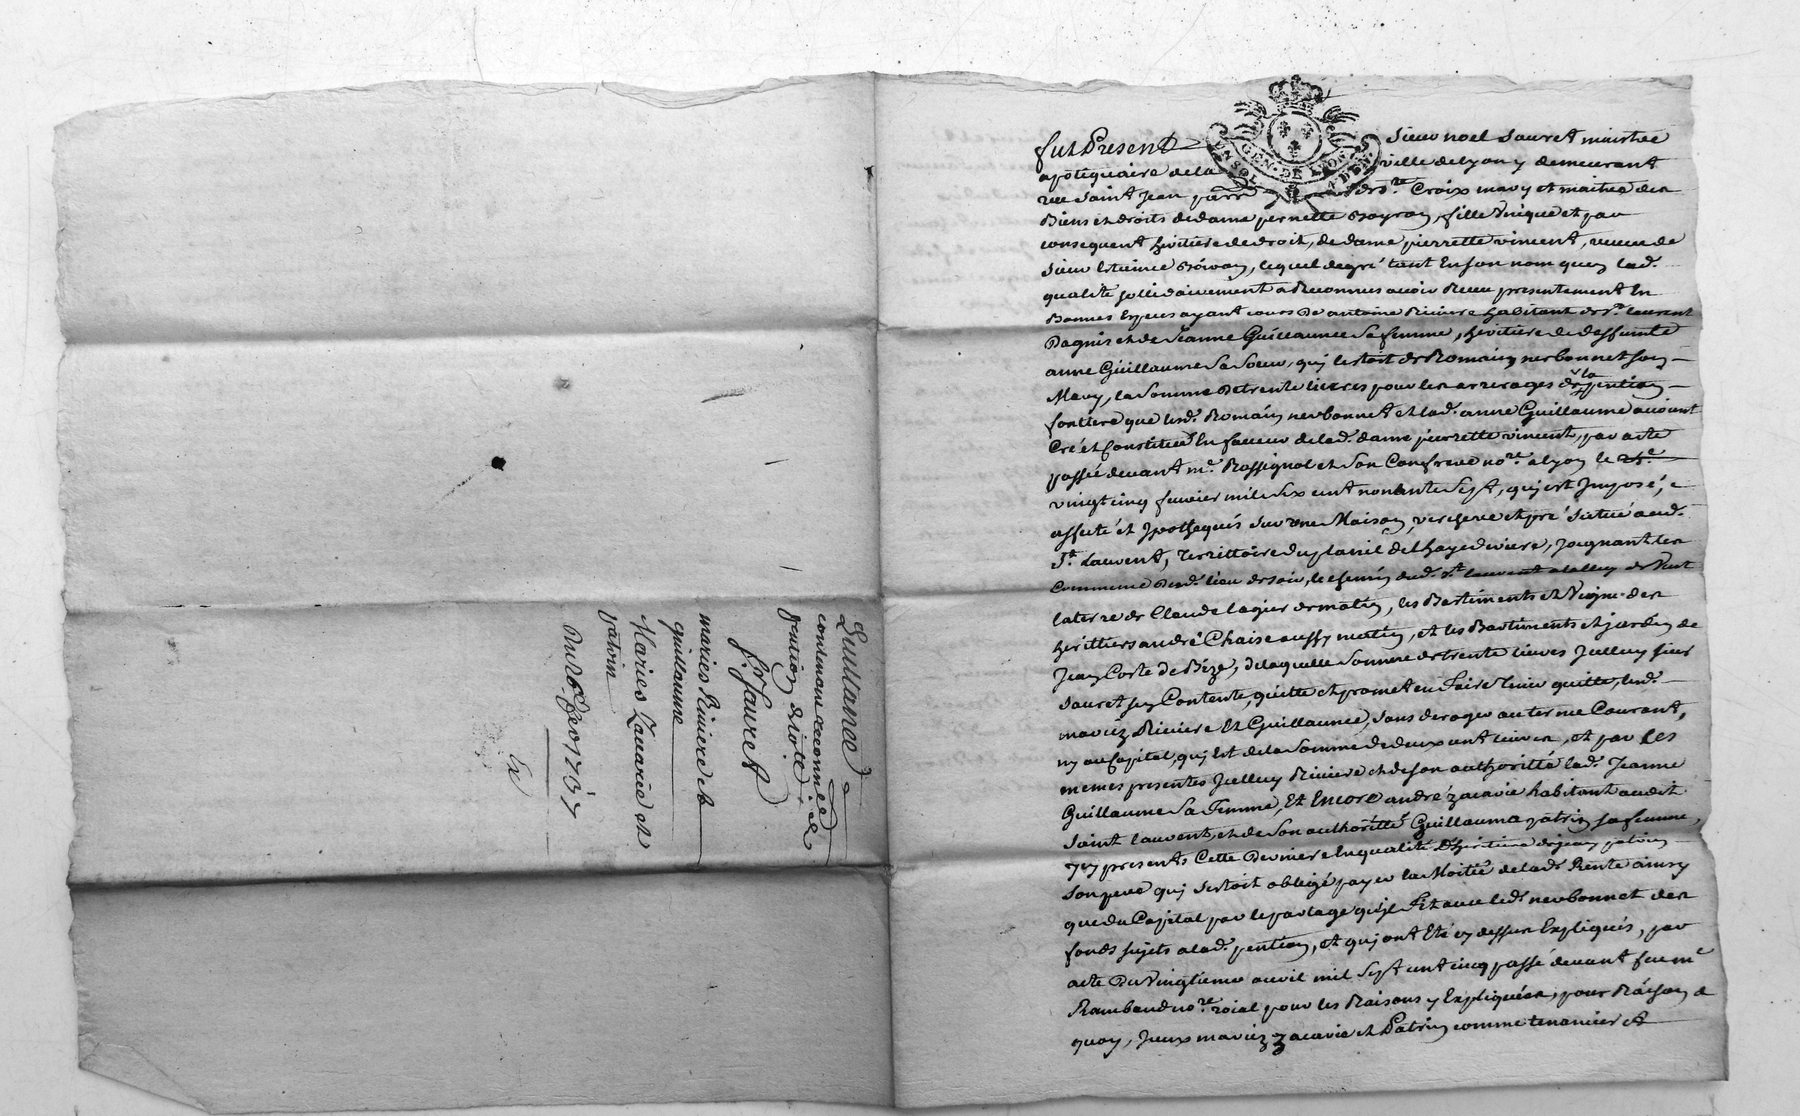 fut Present Sieur noel Sauret maistre
apotiquaire de la ville de lyon y demeurant
rue Saint Jean parr. de Ste. Croix mary et maitre des
Biens et droits de dame pernette Boyron, fille Unique et par
consequent heritiere de droit, de dame pierrette vincent, veuve de
Sieur Estienne Boiron, lequel de gré tant En son nom quen lad.
qualité sollidairement a Reconnu avoir Receu presentement En
Bonnes Especes ayant cours De antoine Riviere habitant de St. laurent
Dagnis et de Jeanne Guillaumee Sa femme, heritiere de deffunte
anne Guillaume Sa Soeur, quj lestoit de Romain nerbonnet son
Mary, la Somme De trente livres pour les arrerages de la pention
fontiere que lesd. Romain nerbonnet et lad. anne Guillaume avoient
Creé et Constitueé En faveur de lad. dame pierrette vincent, par acte
passé devant me. Rossignol et Son Confrere nore. a lyon le
vingt cinq fevrier mil Six cent nonante Sept, quj est Jmposé,
affecté et Jpothequés Sur une Maison, verchere et pré Situé aud.
St. Laurent, Territtoire du planil de lhaye diviere, Joignant les
Commune dud. lieu de soir, le chemin dud. St. laurent a lalluy de Vent
la terre de Claude lagier de matin, les Bastiments et Vigne des
heritiers andré Chaise aussy matin, et les Bastiments et jardin de
Jean Coste de Bize, de laquelle Somme de trente livres Jcelluy sieur
Sauret sen Contente, quitte et promet en faire tenir quitte, lesd.
mariez Riviere Et Guillaumee, Sans deroger au terme Courant,
ny au Capital, quj Est de la Somme de deux cent livres, et par les
memes presentes Jcelluy Riviere et de son authoritté lad. Jeanne
Guillaume Sa Femme, Et Encore andré zacarie habitant audit
Saint laurent, et de Son authoritté Guillauma patrin sa femme,
Jcy presents Cette Derniere En qualité D'heritiere de jean patrin
Son pere quj Sestoit obligé payer la Moitié de lad. Rente ainsy
que du Capital par le partage quil Fit avec led. nerbonnet des
fonds sujets a lad. pention, et quj ont Eté cy dessus Expliqués, par
acte Du Vingtieme avril mil Sept cent cinq passé devant feu me
Rambaud nore. roial pour les Raisons y Expliquées, pour Raison de
quoy, Jceux mariez zacarie et Patrin comme tenancier Et
Quittance
contenant reconnce. de
pention & dote
Sr. Sauret
mariés Riviere et
guillaume
Mariés Zacarie et
patrin